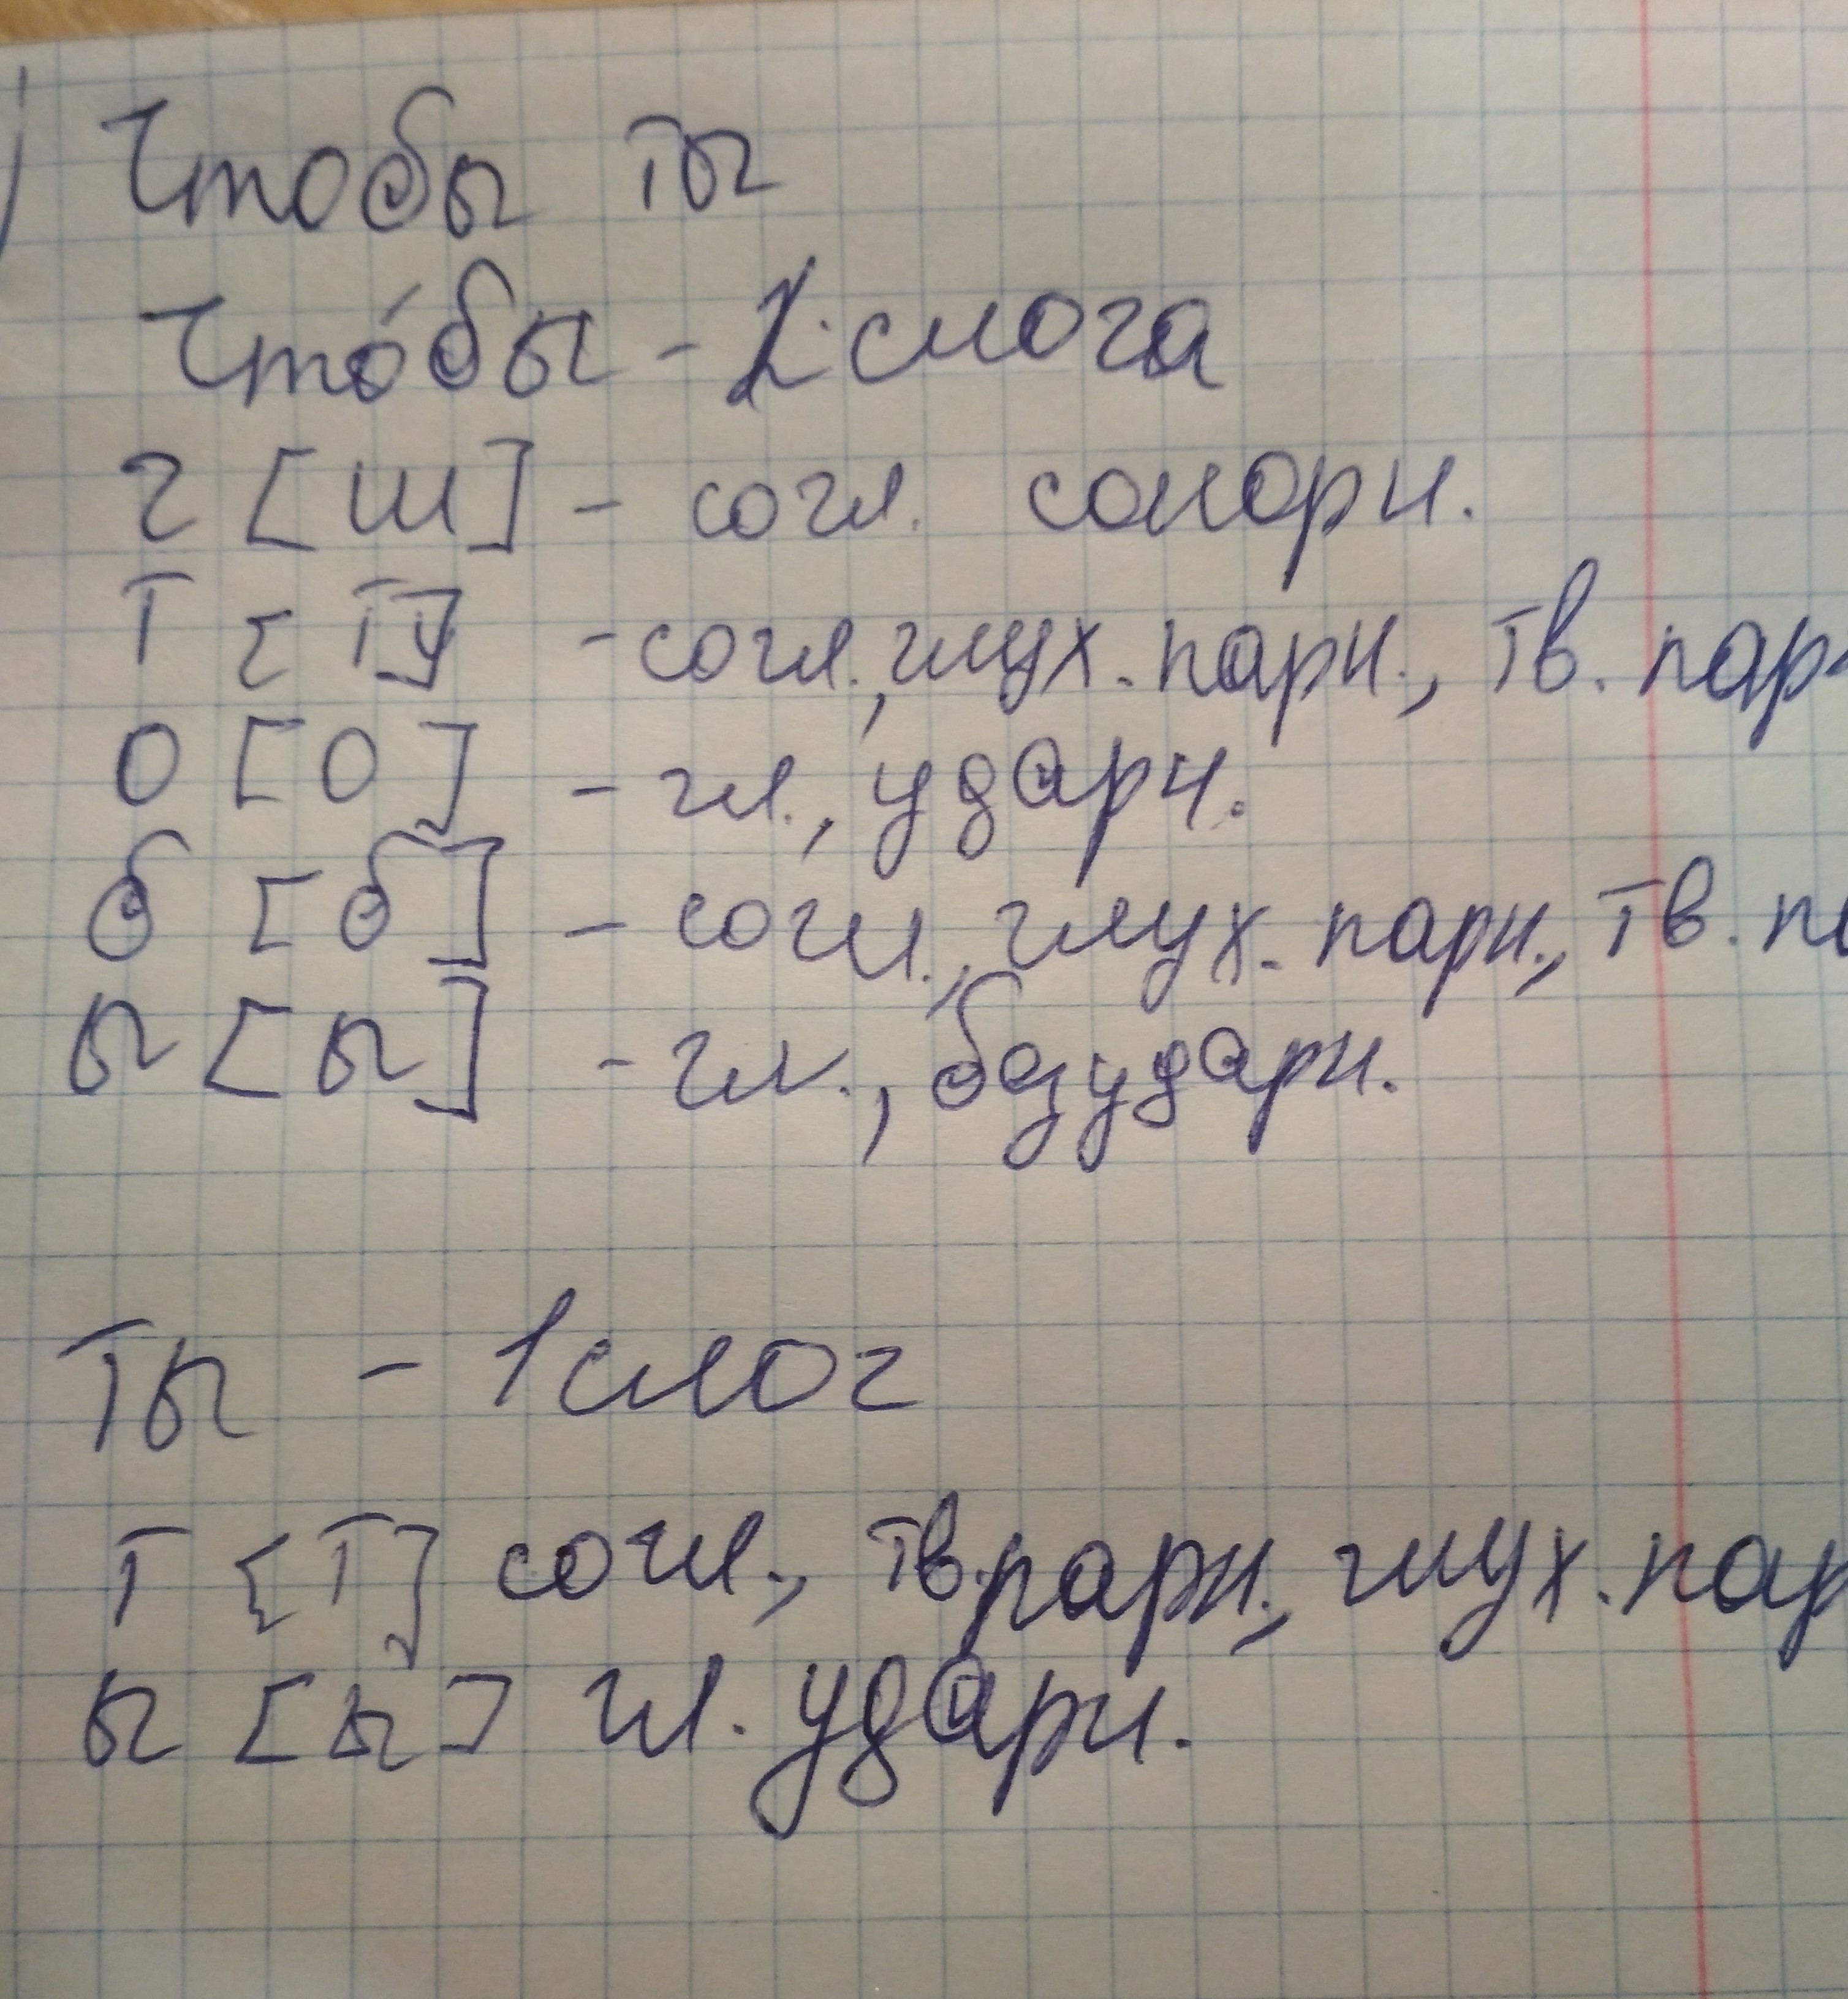 Чтобы ты
Что́бы - 2 слога
ч [ш] - согл. сонорн.
т [т] - согл., глух. парн., тв. пар
о [о] - гл., ударн.
б [б] - согл., глух. парн., тв. па
ы [ы] - гл., безударн.
Ты - 1 слог
т [т] согл., тв. парн., глух. пар
ы [ы] гл. ударн.